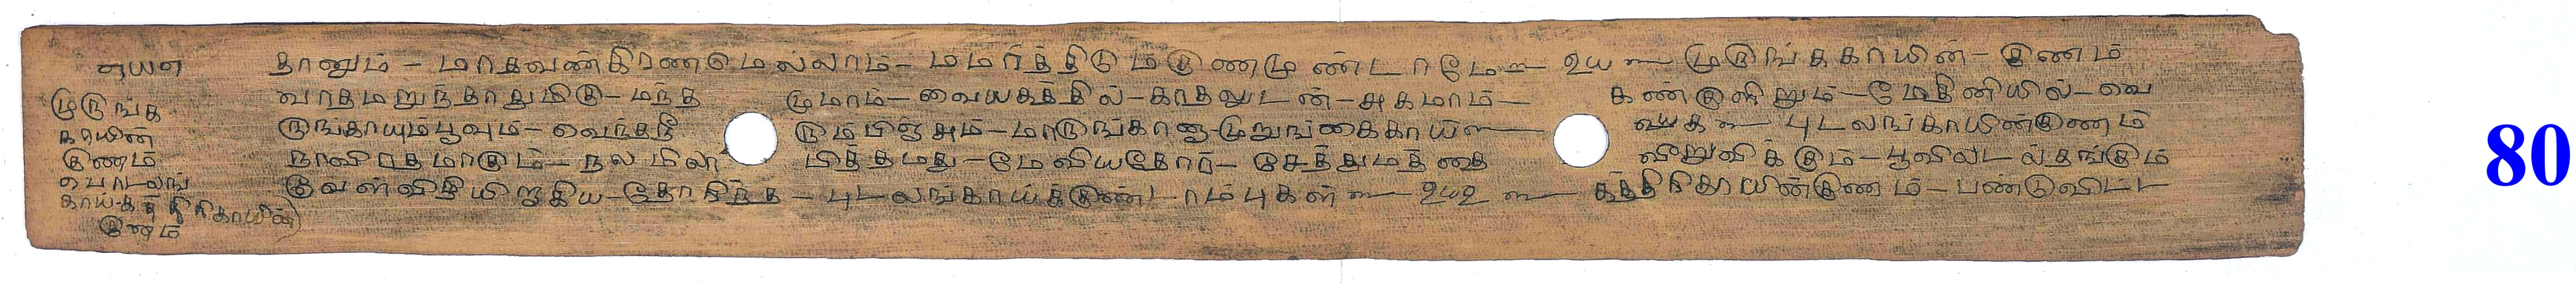 முருங்க
காயின்
குணம்
பொடலங்
காய்-கத்திரிகாயின்
குணம்
தானும் – மாதவண்கிரணமெல்லாம்– மமர்த்திடு மகுணமுண்டாமே – ௨௰ – முருங்ககாயின்– குணம்
வாதமறுந்தாதுமிகு– மந்த முமாம்– வையகத்தில்–காதலுடன்–அகமாம்– கண்குளிறும்–மேதினியில்–வெ
ருங்காயும்பூவும்– வெந்தநீ ரும்பிஞ்சும்–மாருங்கானு முறுங்கைகாய் புடலங்காயின்குணம்
நாவிரதமாகும்– நலமிலா பித்தமது–மேவியதோர்– சேத்துமத்தை வீறுவிக்கும்–பூவிலடல்தங்கும்
வேள்விதியிறுகிய–தோகிந்த – புடலங்காய்க்குண்டாம்புகள் – ௨௰௨ – கத்திரிகாயின்குணம்– பண்டுவிட்ட
80